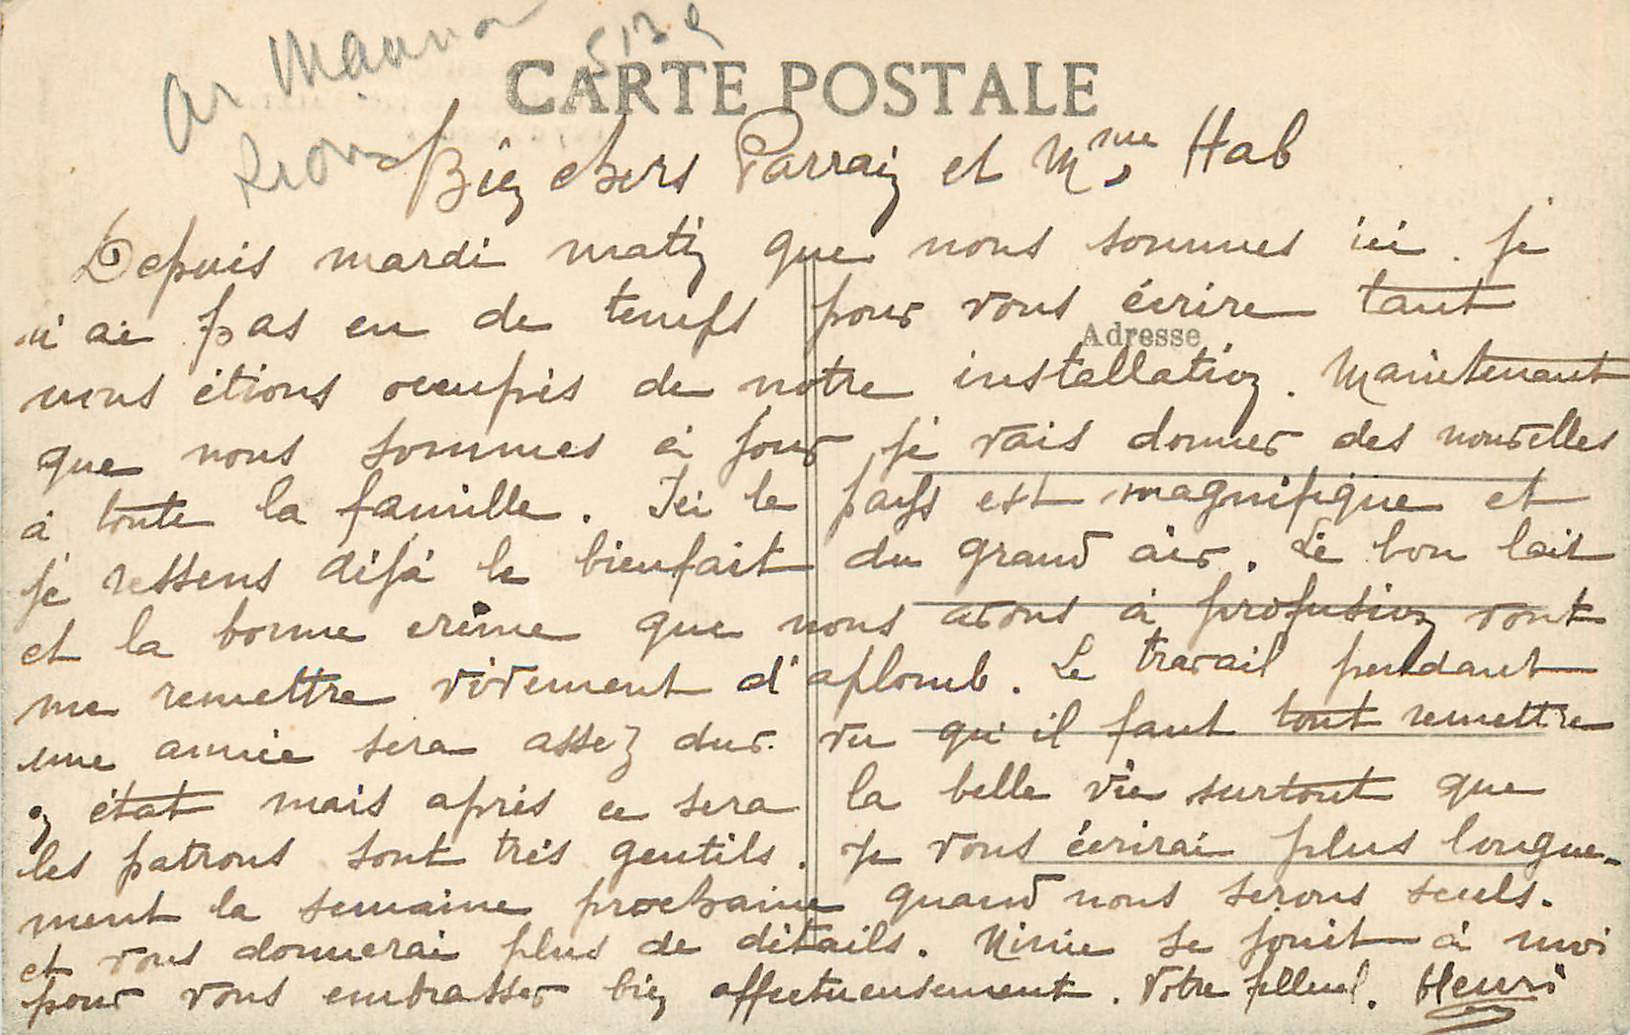 CARTE POSTALE
Bien chers Parrain et Mme Hab
Depuis mardi matin que nous sommes ici. Je
n'ai pas eu de temps pour vous écrire tant
Adresse
nous étions occupés de notre installation. Maintenant
que nous sommes à jour je vais donner des nouvelles
à toute la famille. Ici le pays est magnifique et
je ressens déjà le bienfait du grand air. Le bon lait
et la bonne crème que nous avons à profusion vont
me remettre vivement d'aplomb. Le travail pendant
une année sera assez dur. vu qu'il faut tout remettre
en état mais après ce sera la belle vie surtout que
les patrons sont très gentils. Je vous écrirai plus longue-
ment la semaine prochaine quand nous serons seuls.
et vous donnerai plus de détails. Ninie se joint à moi
pour vous embrasser bien affectueusement. Votre filleul. Henri